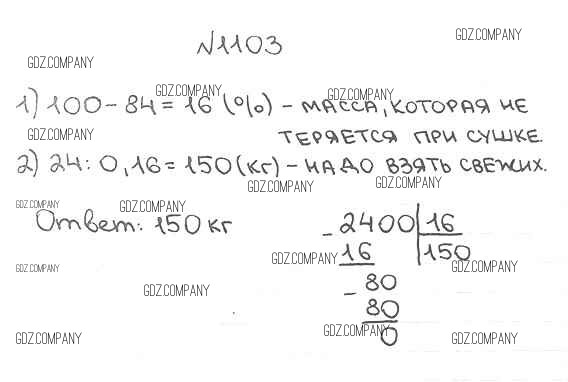 №1103
GDZ.COMPANY
GDZ.COMPANY
GDZ.COMPANY
GDZ.COMPANY
1) 100 - 84 = 16 (%) - МАССА, КОТОРАЯ НЕ
GDZ.COMPANY
ТЕРЯЕТСЯ ПРИ СУШКЕ.
2) 24 : 0,16 = 150 (кг) - НАДО ВЗЯТЬ СВЕЖИХ.
GDZ.COMPANY
GDZ.COMPANY
GDZ.COMPANY
GDZ.COMPANY
Ответ: 150 кг
- 2400 | 16
16 | 150
GDZ.COMPANY
GDZ.COMPANY
GDZ.COMPANY
- 80
GDZ.COMPANY
80
GDZ.COMPANY
0
GDZ.COMPANY
GDZ.COMPANY